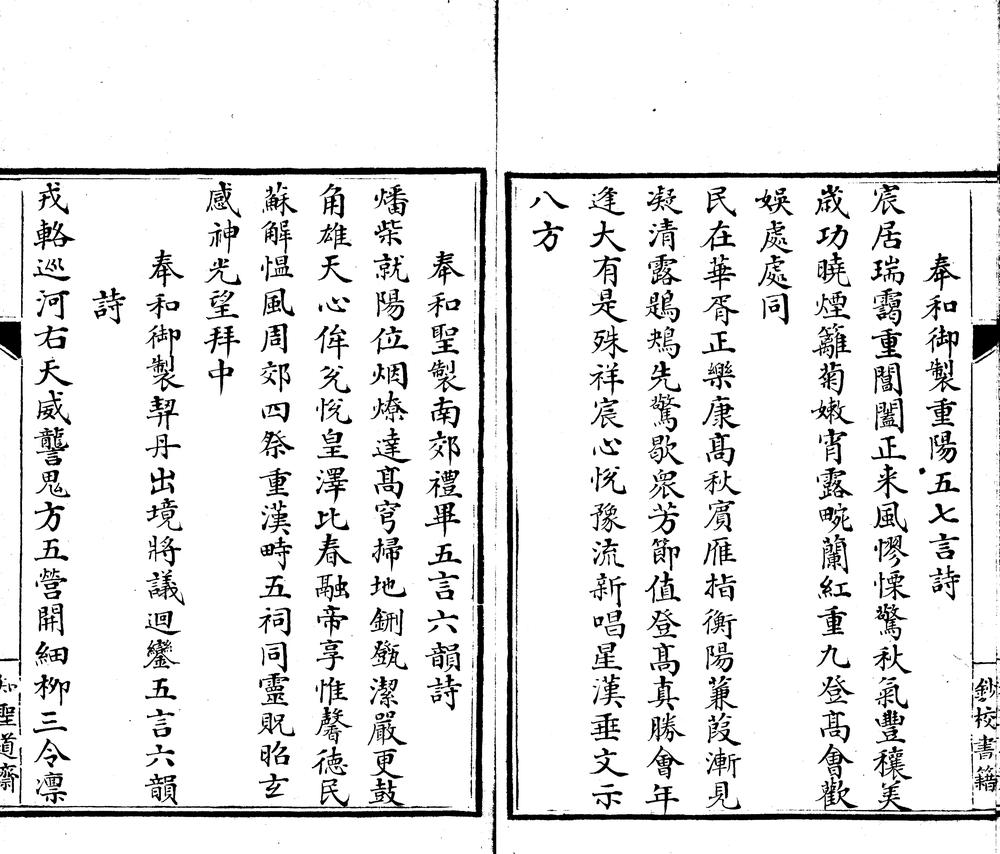 奉和御製重陽五七言詩
宸居瑞靄重閶闔正来風憀慄驚秋氣豐穰美
嵗功曉煙籬菊嫩宵露畹蘭紅重九登髙會歡
娱處處同
民在華胥正樂康髙秋賓雁指衡陽蒹葭漸見
凝清露鶗鴂先驚歇衆芳節值登髙真勝會年
逢大有是殊祥宸心悅豫流新唱星漢垂文示
八方
鈔校書籍
奉和聖製南郊禮畢五言六韻詩
燔柴就陽位烟燎達髙穹掃地鉶㽅潔嚴更鼓
角雄天心侔兊悅皇澤比春融帝享惟馨徳民
蘇解愠風周郊四祭重漢畤五祠同靈貺昭𤣥
感神光望拜中
奉和御製契丹出境將議迴鑾五言六韻
詩
戎輅巡河右天威讋鬼方五營開細柳三令凛
知聖道齋